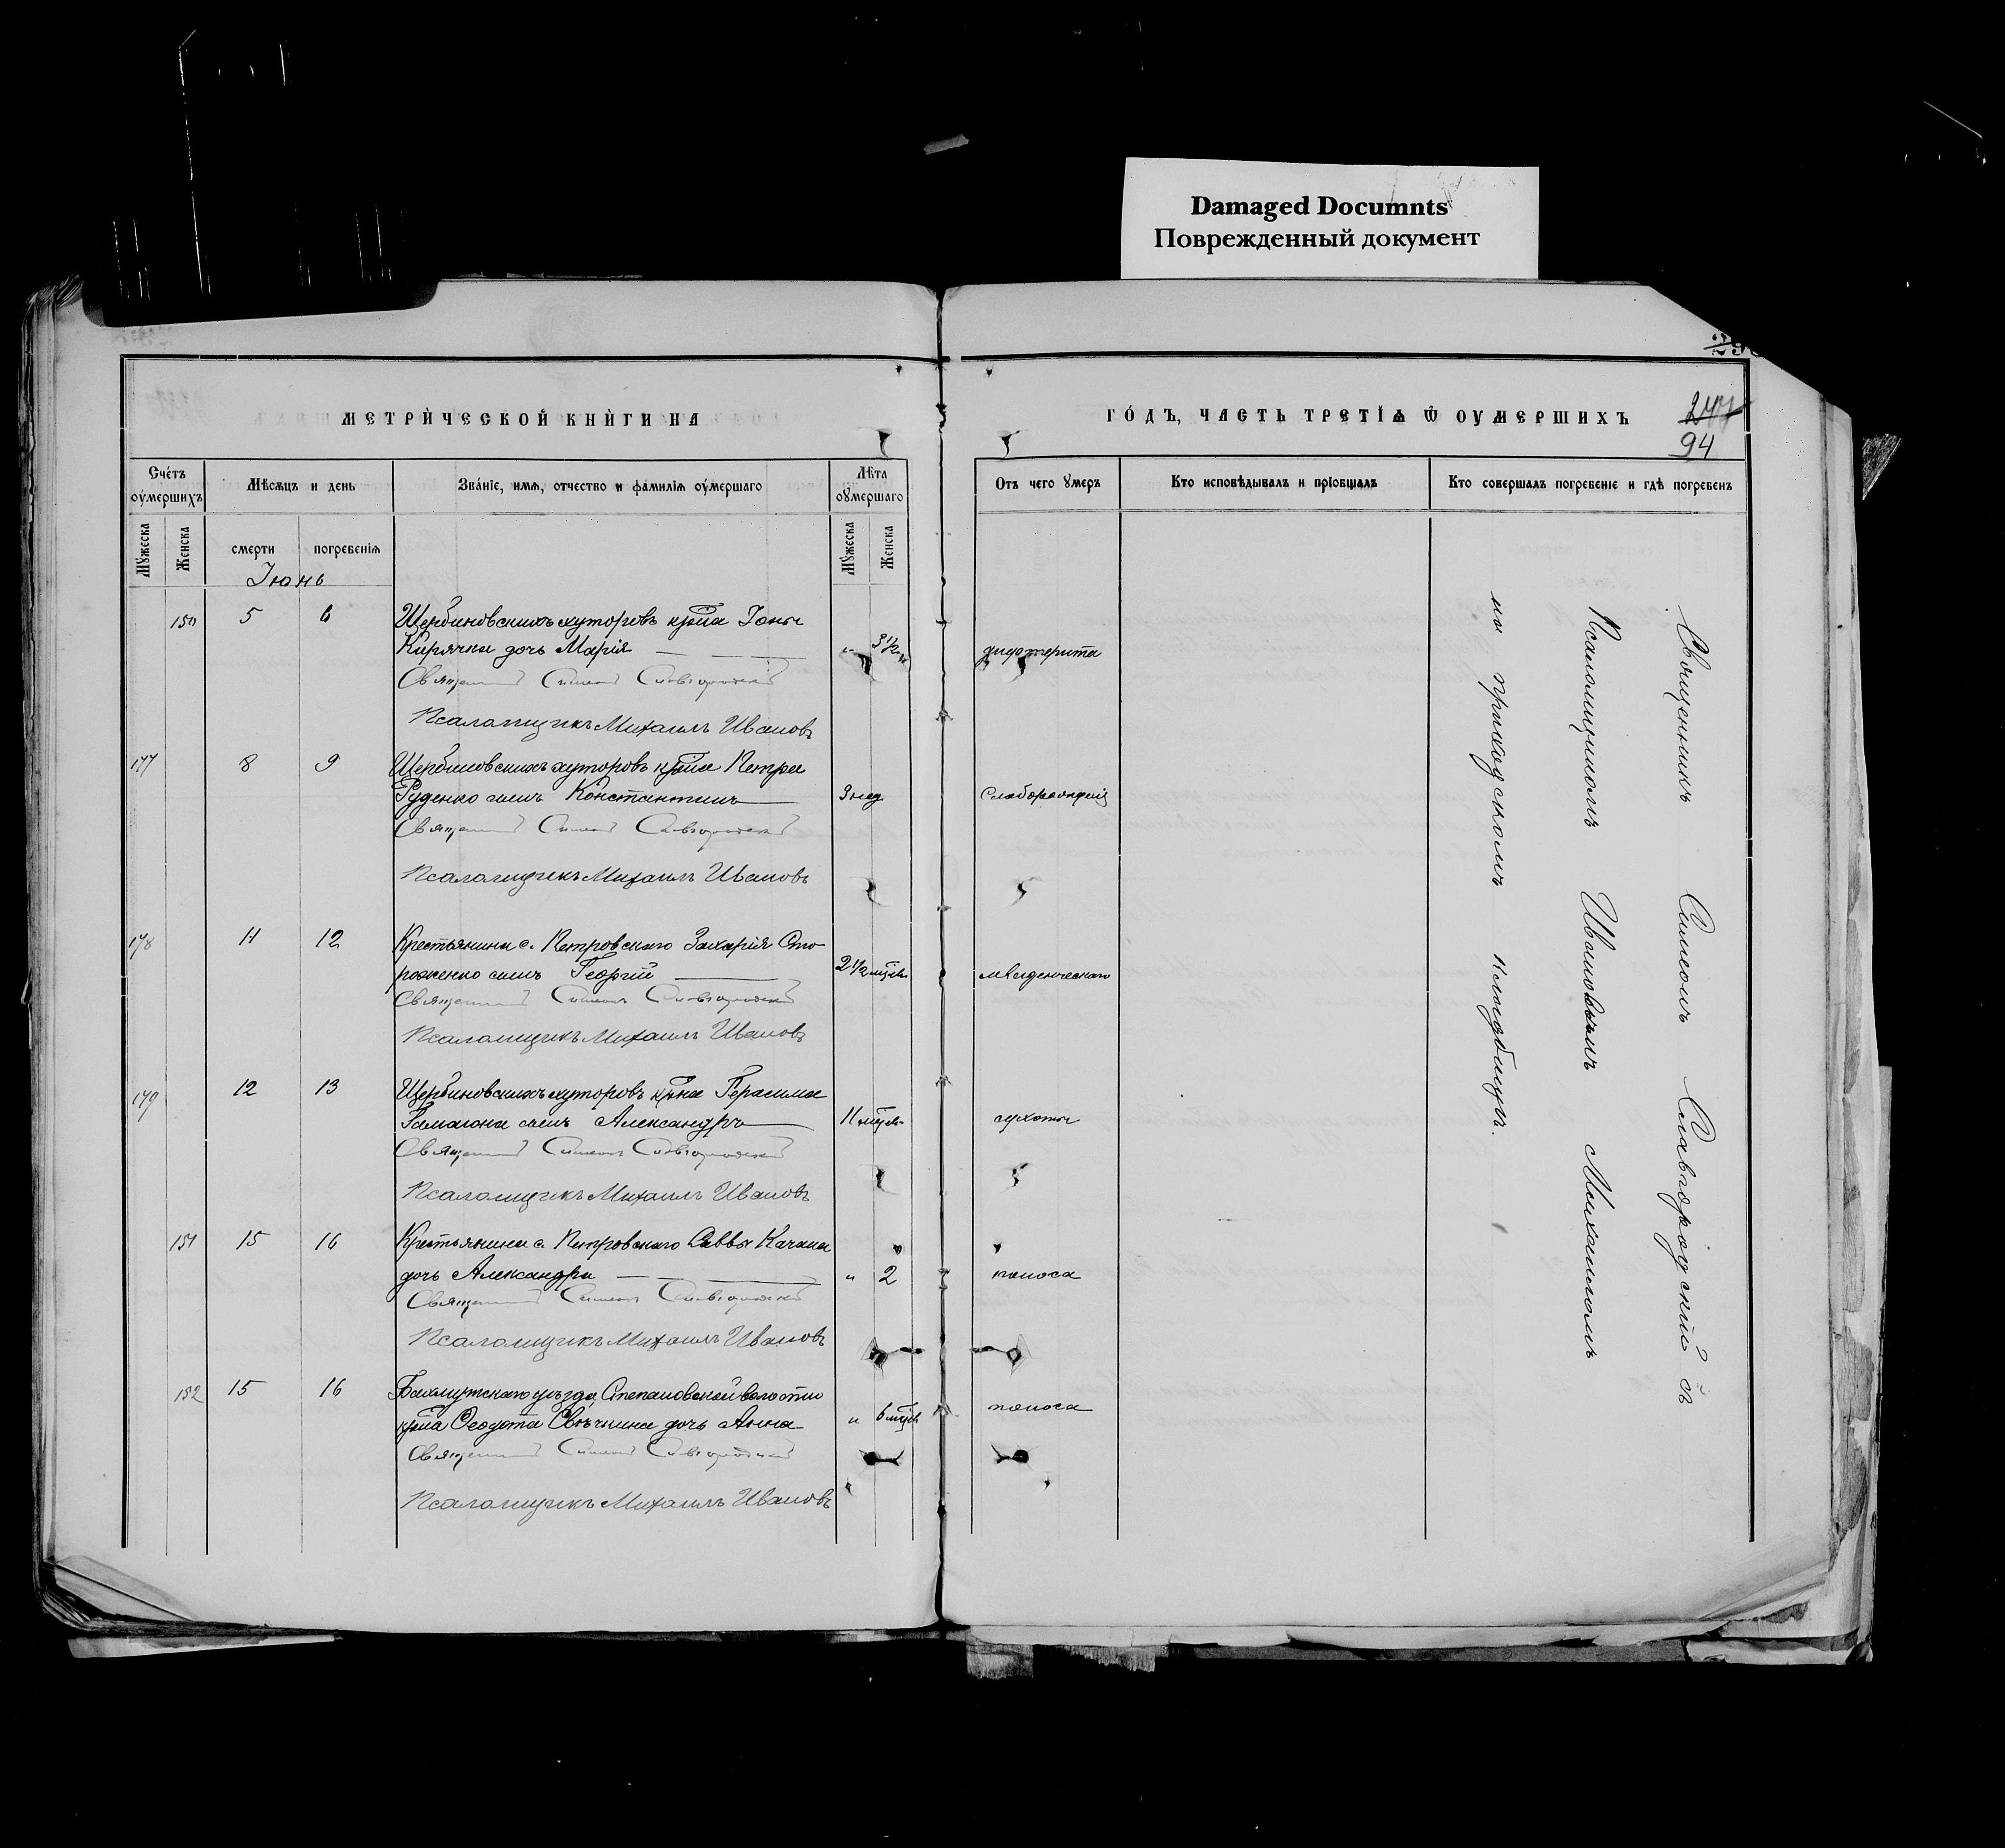 Damaged Documnts
Поврежденный документ
МЕТРИЧЕСКОЙ КНИГИ НА
ГОДЪ, ЧАСТЬ ТРЕТІѦ Ѿ ОУМЕРШИХЪ
244
94
Счетъ оумершихъ
Мѣсяцъ и день
Званіе, имя, отчество и фамилія оумершаго
Лѣта оумершаго
Мужеска
Женска
смерти
погребенія
Мужеска
Женска
Отъ чего умеръ
Кто исповѣдывалъ и пріобщалъ
Кто совершалъ погребеніе и гдѣ погребенъ
Іюнь
150 5 6 Щербиновскихъ хуторовъ кр-на Іоны
Кирячка дочь Марія " 3½ дифтерита
Священникъ Симеонъ Славгородскій
Псаломщикъ Михаилъ Ивановъ
177 8 9 Щербиновскихъ хуторовъ кр-на Петра
Руденко сынъ Константинъ 3 нед
Священникъ Симеонъ Славгородскій
Псаломщикъ Михаилъ Ивановъ
178 11 12 Крестьянина с. Петровскаго Захарія Сто-
роженко сынъ Георгій 2½ мѣс младенческаго
Священникъ Симеонъ Славгородскій
Псаломщикъ Михаилъ Ивановъ
179 12 13 Щербиновскихъ хуторовъ кр-на Герасима
сынъ Александръ 11 мѣс сухоты
Священникъ Симеонъ Славгородскій
Псаломщикъ Михаилъ Ивановъ
151 15 16 Крестьянина с. Петровскаго Саввы Качана
дочь Александра " 2 поноса
Священникъ Симеонъ Славгородскій
Псаломщикъ Михаилъ Ивановъ
152 15 16 Бахмутскаго уѣзда, Степановской волости
кр-на Ѳеодота Свѣчкина дочь Анна " 6 мѣс поноса
Священникъ Симеонъ Славгородскій
Псаломщикъ Михаилъ Ивановъ
Священникъ Симеонъ Славгородскій съ
Псаломщикомъ Ивановымъ Михаиломъ
на приходскомъ кладбищѣ.